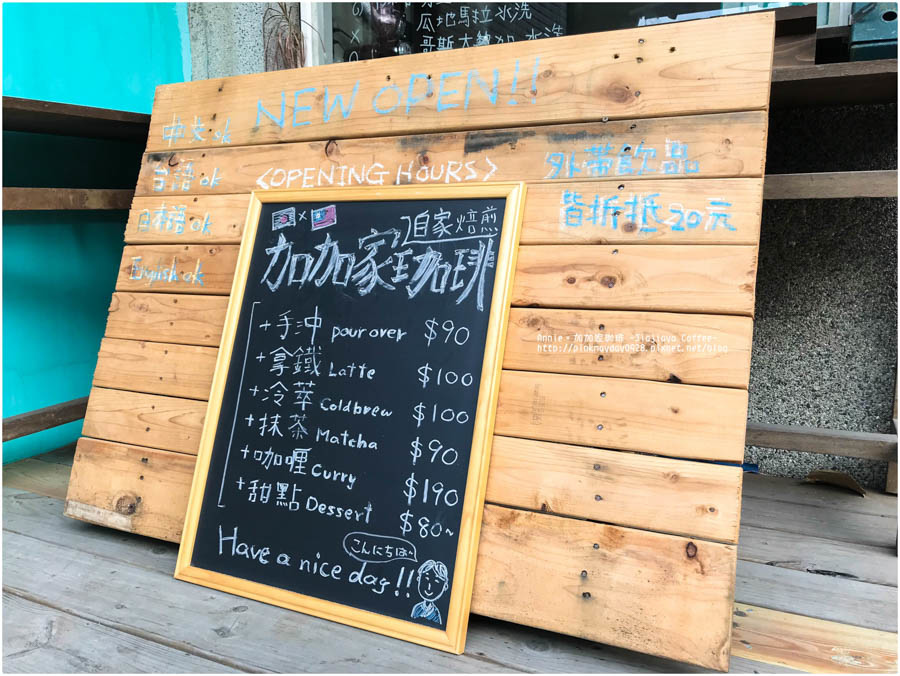 瓜地馬拉水洗
哥斯大黎加 水洗
NEW OPEN!!
中文ok
台語ok
日本語ok
English ok
<OPENING HOURS>
外帶飲品
皆折抵20元
自家焙煎
加加家珈琲
+手沖 pour over $90
+拿鐵 Latte $100
+冷萃 Coldbrew $100
+抹茶 Matcha $90
+咖喱 Curry $190
+甜點 Dessert $80~
こんにちは~
Have a nice day!!
Annie。加加家珈琲 -Jiajiaya Coffee-
http://pinkmayday0928.pixnet.net/blog